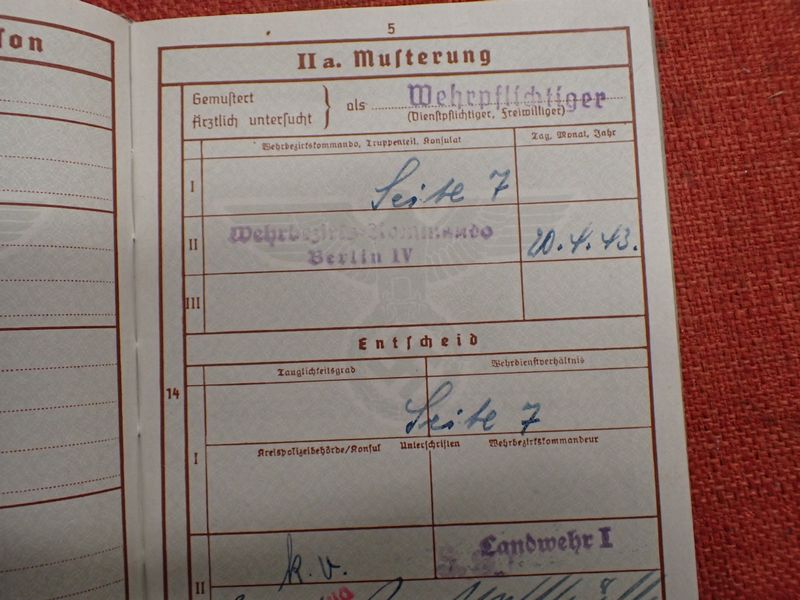 son
5
II a. Musterung
Gemustert
Ärztlich untersucht } als Wehrpflichtiger
(Dienstpflichtiger, Freiwilliger)
Wehrbezirkskommando, Truppenteil, Konsulat
Tag, Monat, Jahr
I
Seite 7
II
Wehrbezirks-Kommando
Berlin IV
20.4.43.
III
Entscheid
14
Tauglichkeitsgrad
Wehrdienstverhältnis
Seite 7
I
Kreispolizeibehörde/Konsul Unterschriften Wehrbezirkskommandeur
k.v.
Landwehr I
II